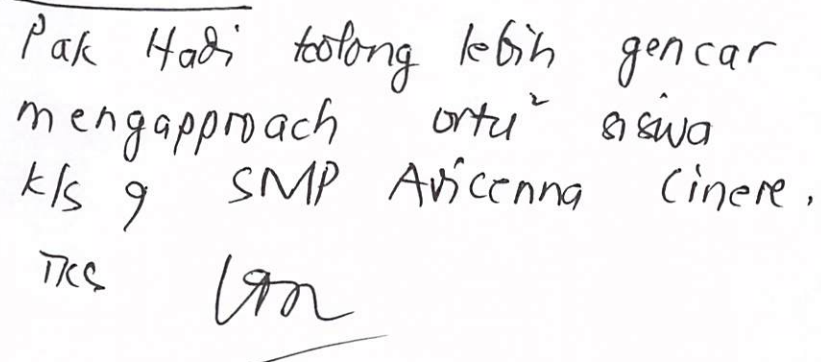 Pak Hadi tolong lebih gencar
mengapproach ortu² siswa
kls 9 SMP Avicenna Cinere.
Tks